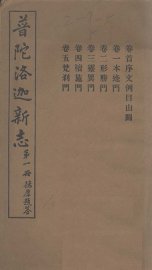 普陀洛迦新志
第一冊
卷首序文例目山圖
卷一本迹門
卷二形勝門
卷三靈異門
卷四檀施門
卷五梵刹門